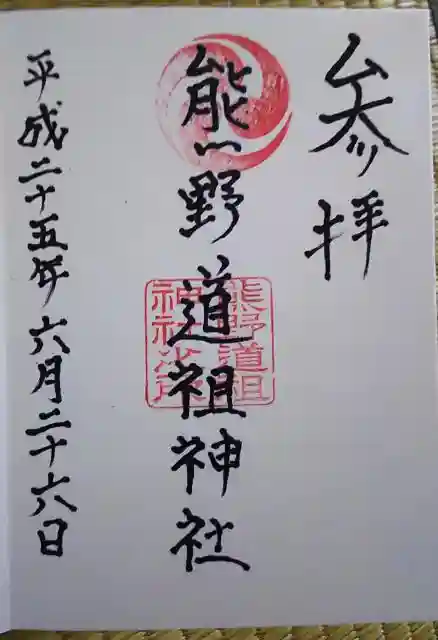 参拝
熊野道祖神社
熊野道祖
神社
平成二十五年六月二十六日